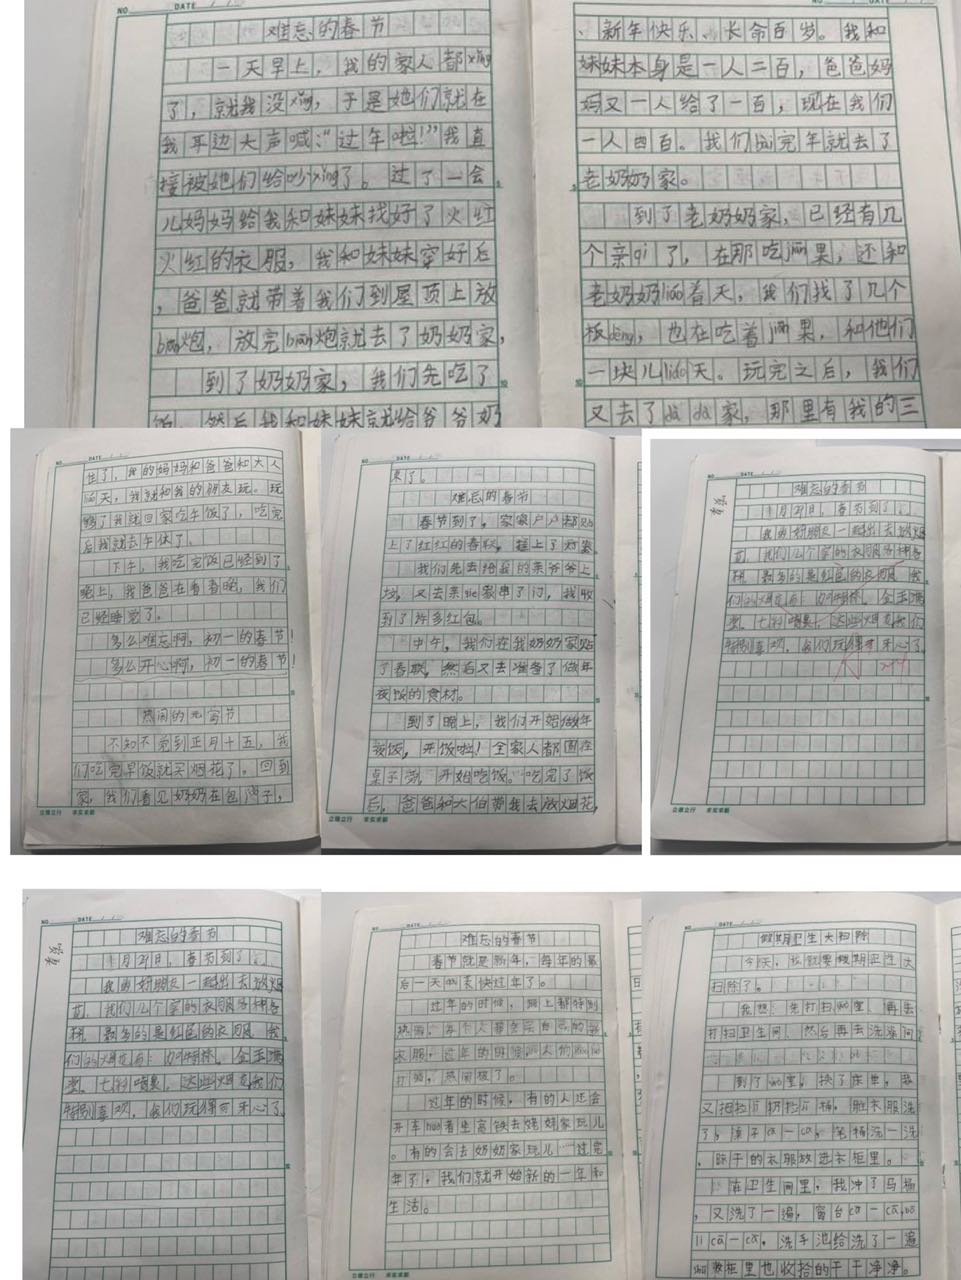 NO. DATE
难忘的春节
一天早上，我的家人都xǐng
了，就我没xǐng，于是她们就在
我耳边大声喊：“过年啦！”我直
接被她们给吵xǐng了。过了一会
儿妈妈给我和妹妹找好了火红
火红的衣服，我和妹妹穿好后
，爸爸就带着我们到屋顶上放
biān炮，放完biān炮就去了奶奶家，
到了奶奶家，我们先吃了
饭，然后我和妹妹就给爷爷奶
DATE
、新年快乐、长命百岁。我和
妹妹本身是一人二百，爸爸妈
妈又一人给了一百，现在我们
一人四百。我们bài完年就去了
老奶奶家。
到了老奶奶家，已经有几
个亲qi了，在那吃jiān果，还和
老奶奶liáo着天，我们找了几个
板dèng，也在吃着jiān果，和他们
一块儿liáo天。玩完之后，我们
又去了dà da家，那里有我的三
NO. DATE
住了，我的妈妈和爸爸和大人
liáo天，我就和我的朋友玩。玩
够了我就回家吃午饭了，吃完
后我就去午休了。
下午，我吃完饭已经到了
晚上，我爸爸在看春晚，我们
已经睡觉了。
多么难忘啊，初一的春节！
多么开心啊，初一的春节！
热闹的元宵节
不知不觉到正月十五，我
们吃完早饭就买烟花了。回到
家，我们看见奶奶在包饺子，
立德立行 求实求新
NO. DATE
来了。
难忘的春节
春节到了，家家户户都贴
上了红红的春联，挂上了灯笼
我们先去给我的亲爷爷上
坟，又去亲qie家串了门，我收
到了许多红包。
中午，我们在我奶奶家贴
了春联，然后又去准备了做年
夜饭的食材。
到了晚上，我们开始做年
夜饭，开饭啦！全家人都围在
桌子旁，开始吃饭。吃完了饭
后，爸爸和大伯带我去放烟花，
立德立行 求实求新
NO. DATE
难忘的春节
1月29日，春节到了。
我勇好朋友一起出去放烟
花，我们几个穿的衣服各种各
样，最多的是红色的衣服，我
们的烟花有：加特林、金玉满
堂、七彩喷泉，这些烟花我们
特别喜欢，我们玩得可开心了。
立德立行 求实求新
NO. DATE
难忘的春节
1月29日，春节到了。
我勇好朋友一起出去放烟
花，我们几个穿的衣服各种各
样，最多的是红色的衣服，我
们的烟花有：加特林、金玉满
堂、七彩喷泉，这些烟花我们
特别喜欢，我们玩得可开心了。
NO. DATE
难忘的春节
春节就是新年，每年的最
后一天dài表快过年了。
过年的时候，街上都特别
热闹，每个人都会买自己的新
衣服，过年的时候，大街
打闹，热闹极了。
过年的时候，有的人还会
开车huò者坐高铁去姥姥家玩儿
。有的会去奶奶家玩儿……过完
年了，我们就开始新的一年和
生活。
NO. DATE
假期卫生大扫除
今天，我就要假期卫生大
扫除了。
我想：先打扫wò里，再去
打扫卫生间，然后再去洗澡间
到了wò里，换了床单，我
又把拉jī扔拉jī桶，脏衣服洗
了，桌子cā一cā，笔桶洗一洗
，晾干的衣服放进衣柜里。
在卫生间里，我冲了马桶
，又洗了一遍，窗台cā一cā，
cā一cā，洗手池给洗了一遍
柜里也收拾的干干净净。